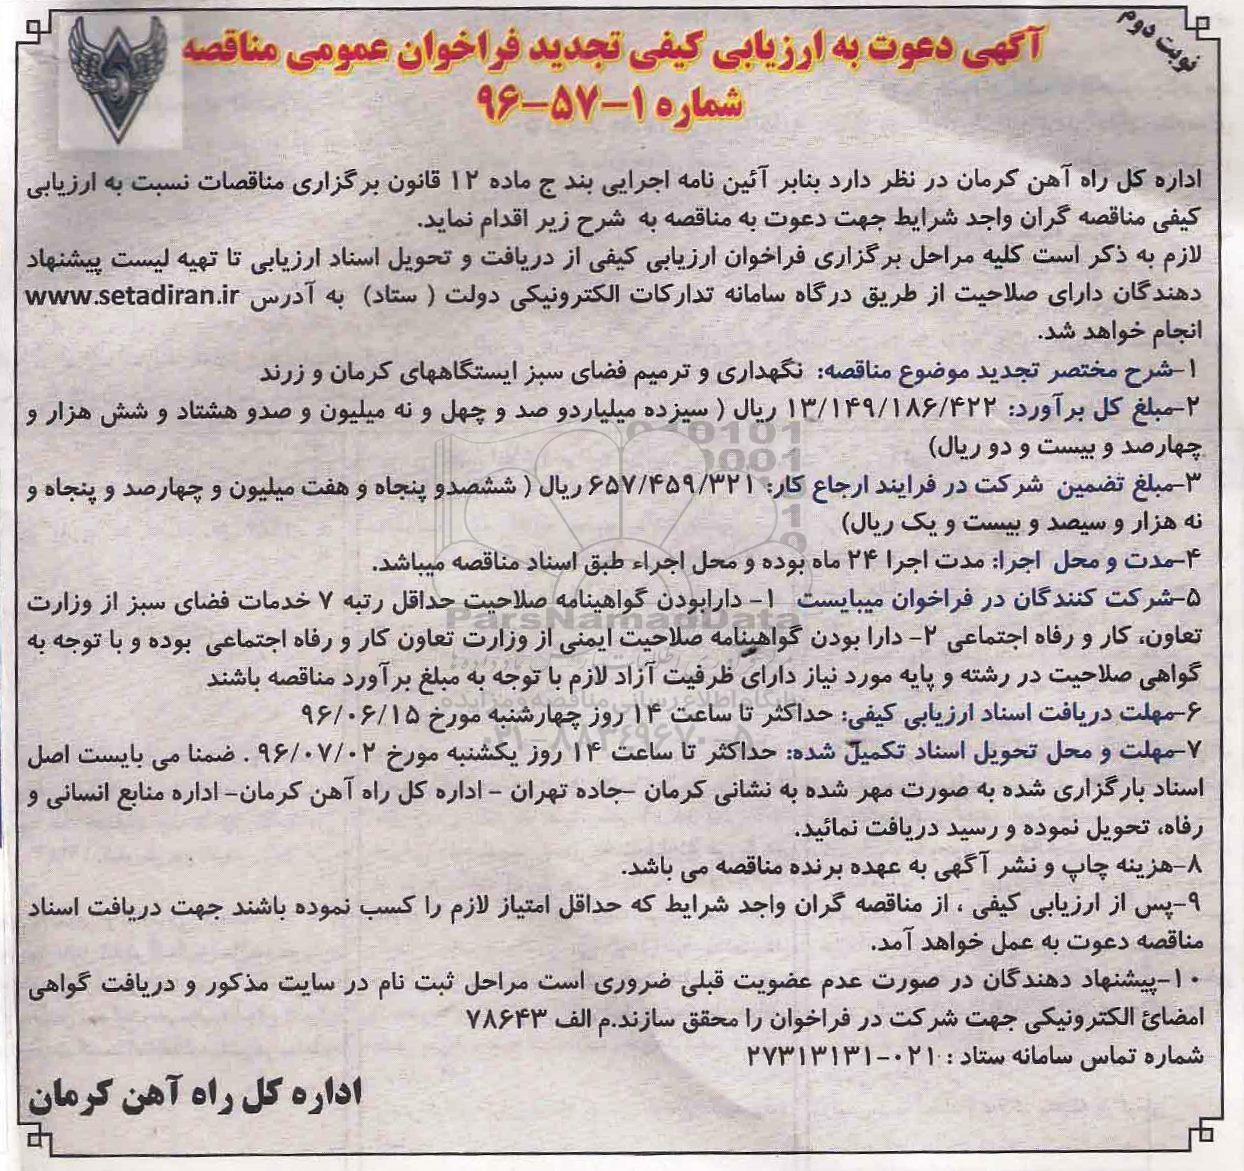 نوبت دوم
آگهی دعوت به ارزیابی کیفی تجدید فراخوان عمومی مناقصه
شماره ۱-۵۷-۹۶
اداره کل راه آهن کرمان در نظر دارد بنابر آئین نامه اجرایی بند ج ماده ۱۲ قانون برگزاری مناقصات نسبت به ارزیابی
کیفی مناقصه گران واجد شرایط جهت دعوت به مناقصه به شرح زیر اقدام نماید.
لازم به ذکر است کلیه مراحل برگزاری فراخوان ارزیابی کیفی از دریافت و تحویل اسناد ارزیابی تا تهیه لیست پیشنهاد
دهندگان دارای صلاحیت از طریق درگاه سامانه تدارکات الکترونیکی دولت ( ستاد) به آدرس www.setadiran.ir
انجام خواهد شد.
۱-شرح مختصر تجدید موضوع مناقصه: نگهداری و ترمیم فضای سبز ایستگاههای کرمان و زرند
۲-مبلغ کل برآورد: ۱۳/۱۴۹/۱۸۶/۴۲۲ ریال ( سیزده میلیاردو صد و چهل و نه میلیون و صدو هشتاد و شش هزار و
چهارصد و بیست و دو ریال)
۳-مبلغ تضمین شرکت در فرایند ارجاع کار: ۶۵۷/۴۵۹/۳۲۱ ریال ( ششصدو پنجاه و هفت میلیون و چهارصد و پنجاه و
نه هزار و سیصد و بیست و یک ریال)
۴-مدت و محل اجرا: مدت اجرا ۲۴ ماه بوده و محل اجراء طبق اسناد مناقصه میباشد.
۵-شرکت کنندگان در فراخوان میبایست ۱- دارابودن گواهینامه صلاحیت حداقل رتبه ۷ خدمات فضای سبز از وزارت
تعاون، کار و رفاه اجتماعی ۲- دارا بودن گواهینامه صلاحیت ایمنی از وزارت تعاون کار و رفاه اجتماعی بوده و با توجه به
گواهی صلاحیت در رشته و پایه مورد نیاز دارای ظرفیت آزاد لازم با توجه به مبلغ برآورد مناقصه باشند
۶-مهلت دریافت اسناد ارزیابی کیفی: حداکثر تا ساعت ۱۴ روز چهارشنبه مورخ ۹۶/۰۶/۱۵
۷-مهلت و محل تحویل اسناد تکمیل شده: حداکثر تا ساعت ۱۴ روز یکشنبه مورخ ۹۶/۰۷/۰۲ . ضمنا می بایست اصل
اسناد بارگزاری شده به صورت مهر شده به نشانی کرمان -جاده تهران - اداره کل راه آهن کرمان- اداره منابع انسانی و
رفاه، تحویل نموده و رسید دریافت نمائید.
۸-هزینه چاپ و نشر آگهی به عهده برنده مناقصه می باشد.
۹-پس از ارزیابی کیفی ، از مناقصه گران واجد شرایط که حداقل امتیاز لازم را کسب نموده باشند جهت دریافت اسناد
مناقصه دعوت به عمل خواهد آمد.
۱۰-پیشنهاد دهندگان در صورت عدم عضویت قبلی ضروری است مراحل ثبت نام در سایت مذکور و دریافت گواهی
امضائ الکترونیکی جهت شرکت در فراخوان را محقق سازند.م الف ۷۸۶۴۳
شماره تماس سامانه ستاد : ۰۲۱-۲۷۳۱۳۱۳۱
اداره کل راه آهن کرمان
ParsNamadData